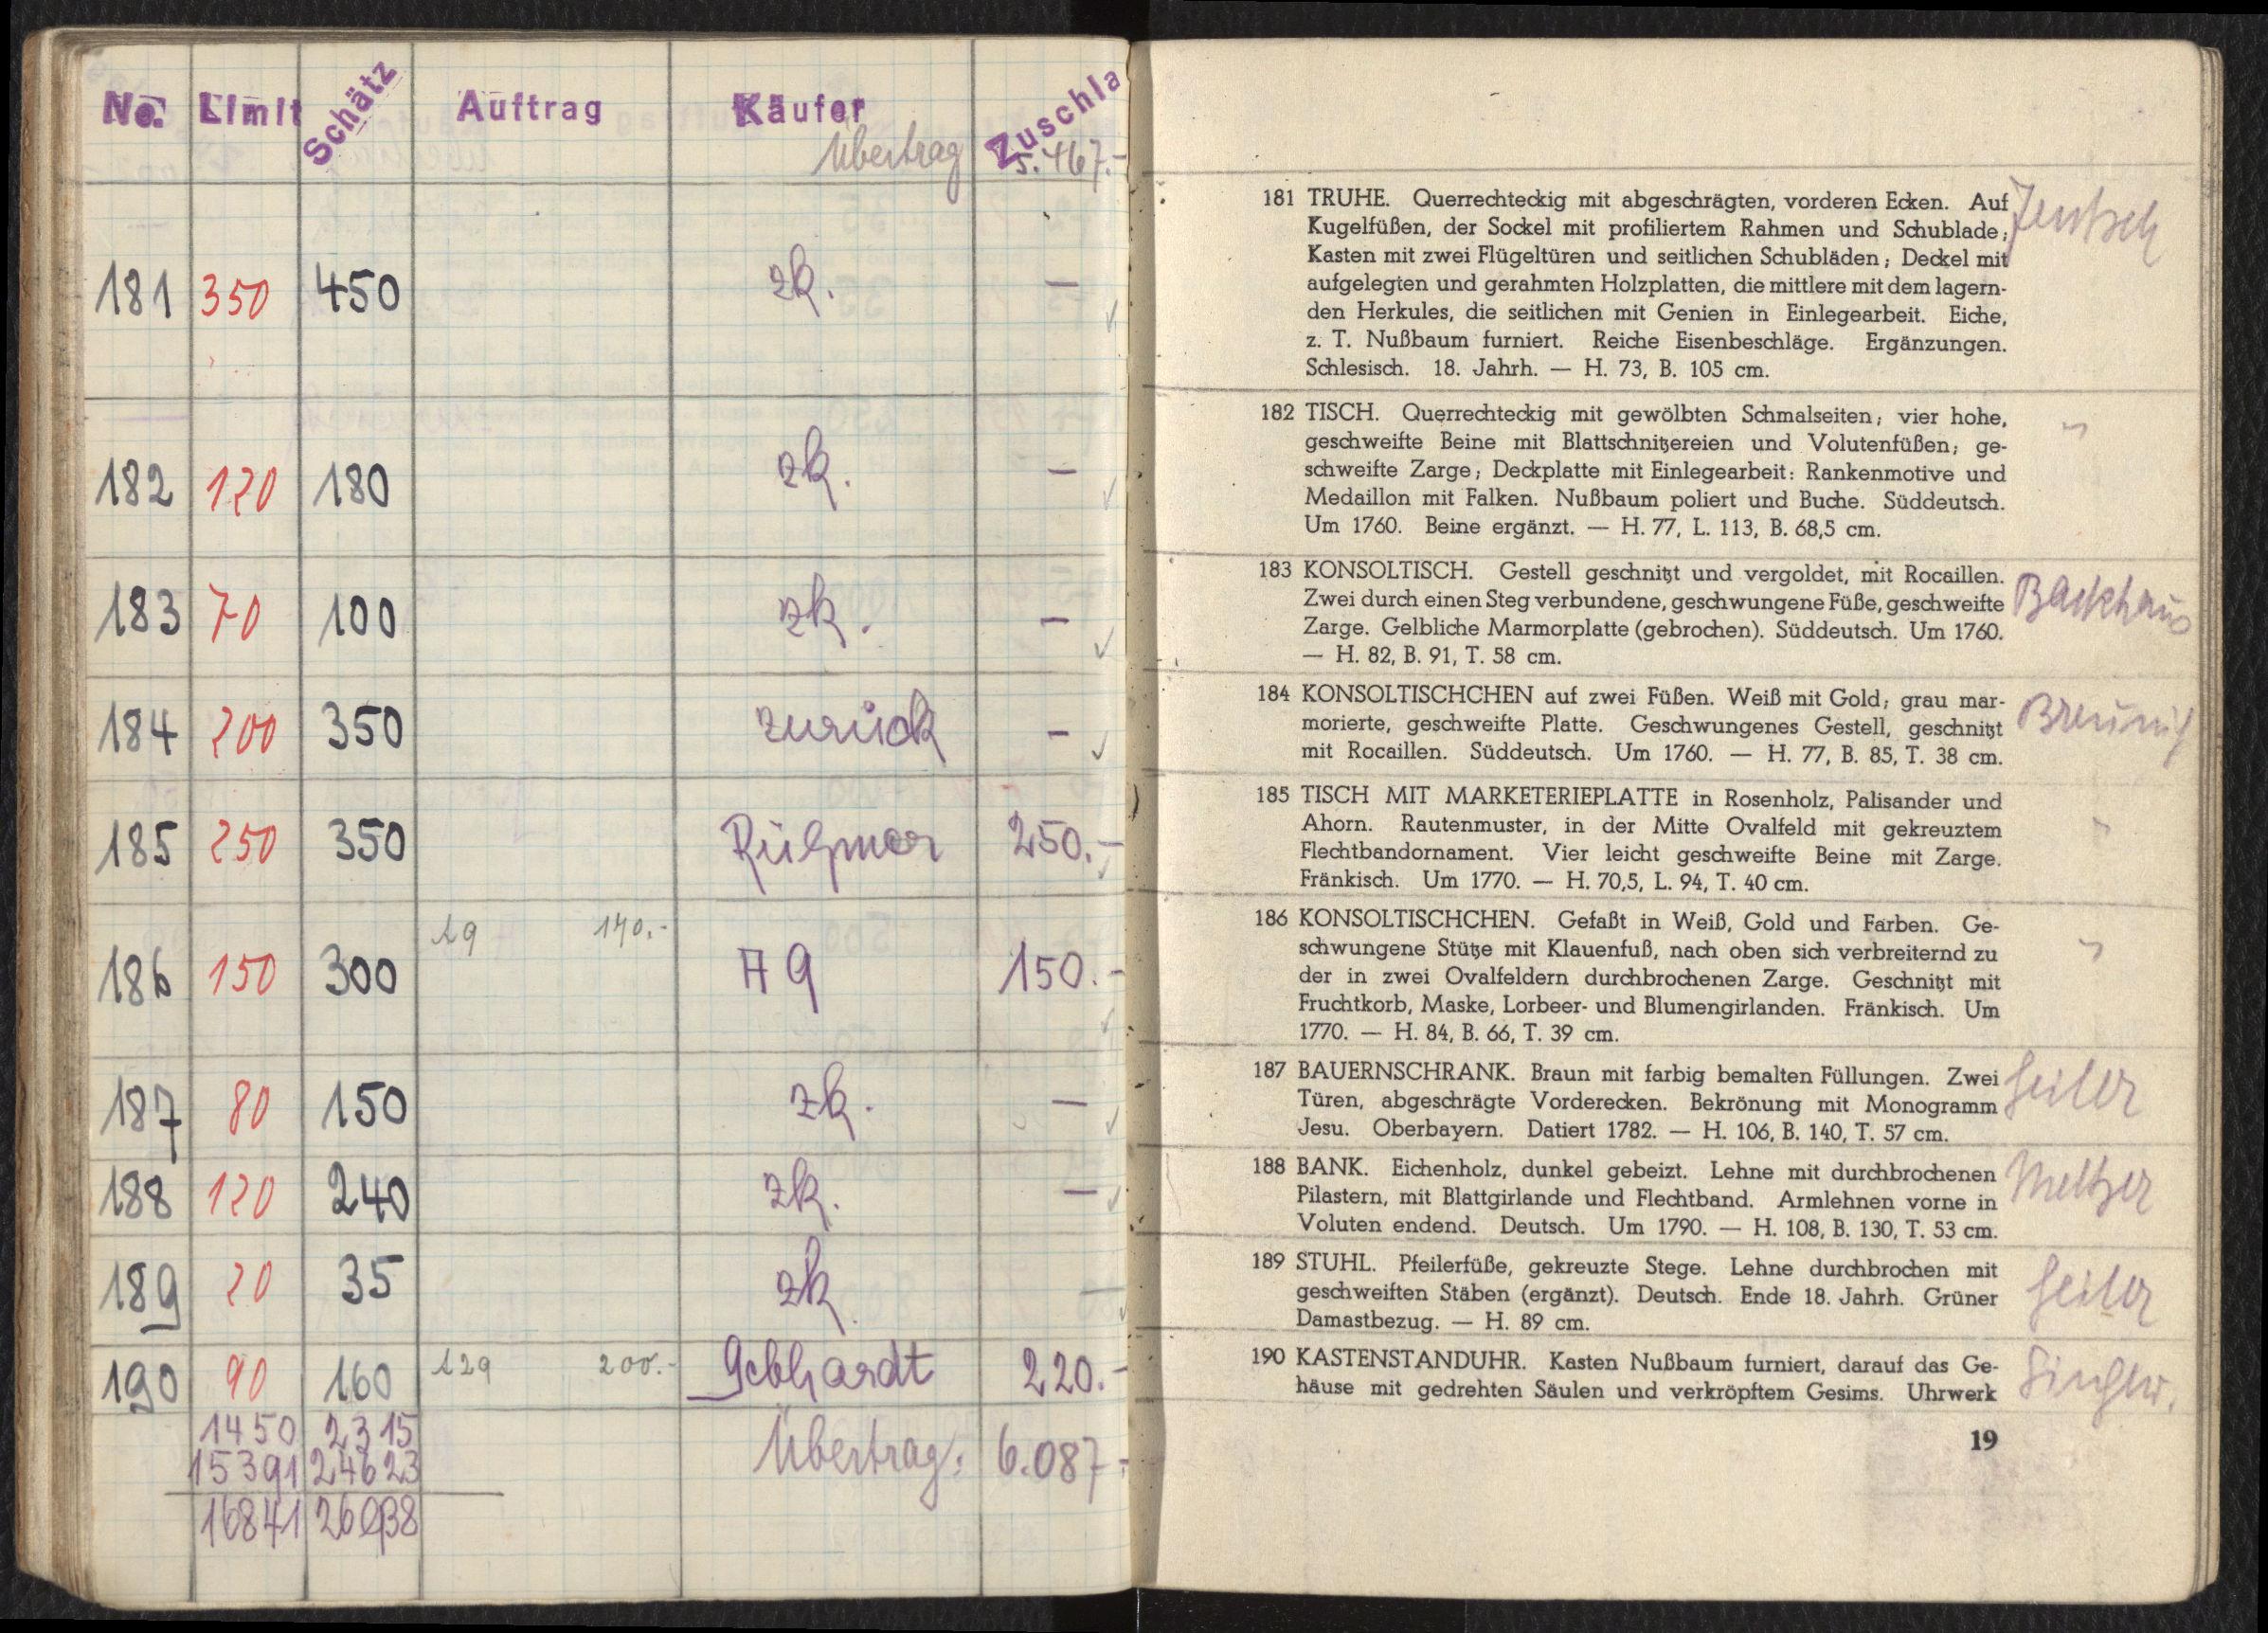 No. Limit Schätz Auftrag Käufer Zuschla
Übertrag 5.467.-
181 350 450 zk. —
182 120 180 zk. —
183 70 100 zk. —
184 200 350 zurück —
185 250 350 250.-
29 140.-
186 150 300 A 9 150.-
187 80 150 zk. —
188 120 240 zk. —
189 20 35 zk —
190 90 160 129 200.- Gebhardt 220.-
1450 2315 Übertrag: 6.087.-
15391 24623
16841 26938
181 TRUHE. Querrechteckig mit abgeschrägten, vorderen Ecken. Auf
Kugelfüßen, der Sockel mit profiliertem Rahmen und Schublade;
Kasten mit zwei Flügeltüren und seitlichen Schubläden; Deckel mit
aufgelegten und gerahmten Holzplatten, die mittlere mit dem lagern-
den Herkules, die seitlichen mit Genien in Einlegearbeit. Eiche,
z. T. Nußbaum furniert. Reiche Eisenbeschläge. Ergänzungen.
Schlesisch. 18. Jahrh. — H. 73, B. 105 cm.
Jentsch
182 TISCH. Querrechteckig mit gewölbten Schmalseiten; vier hohe,
geschweifte Beine mit Blattschnitzereien und Volutenfüßen; ge-
schweifte Zarge; Deckplatte mit Einlegearbeit: Rankenmotive und
Medaillon mit Falken. Nußbaum poliert und Buche. Süddeutsch.
Um 1760. Beine ergänzt. — H. 77, L. 113, B. 68,5 cm.
"
183 KONSOLTISCH. Gestell geschnitzt und vergoldet, mit Rocaillen.
Zwei durch einen Steg verbundene, geschwungene Füße, geschweifte
Zarge. Gelbliche Marmorplatte (gebrochen). Süddeutsch. Um 1760.
— H. 82, B. 91, T. 58 cm.
Backhaus
184 KONSOLTISCHCHEN auf zwei Füßen. Weiß mit Gold; grau mar-
morierte, geschweifte Platte. Geschwungenes Gestell, geschnitzt
mit Rocaillen. Süddeutsch. Um 1760. — H. 77, B. 85, T. 38 cm.
Breunig
185 TISCH MIT MARKETERIEPLATTE in Rosenholz, Palisander und
Ahorn. Rautenmuster, in der Mitte Ovalfeld mit gekreuztem
Flechtbandornament. Vier leicht geschweifte Beine mit Zarge.
Fränkisch. Um 1770. — H. 70,5, L. 94, T. 40 cm.
"
186 KONSOLTISCHCHEN. Gefaßt in Weiß, Gold und Farben. Ge-
schwungene Stütze mit Klauenfuß, nach oben sich verbreiternd zu
der in zwei Ovalfeldern durchbrochenen Zarge. Geschnitzt mit
Fruchtkorb, Maske, Lorbeer- und Blumengirlanden. Fränkisch. Um
1770. — H. 84, B. 66, T. 39 cm.
"
187 BAUERNSCHRANK. Braun mit farbig bemalten Füllungen. Zwei
Türen, abgeschrägte Vorderecken. Bekrönung mit Monogramm
Jesu. Oberbayern. Datiert 1782. — H. 106, B. 140, T. 57 cm.
Seiler
188 BANK. Eichenholz, dunkel gebeizt. Lehne mit durchbrochenen
Pilastern, mit Blattgirlande und Flechtband. Armlehnen vorne in
Voluten endend. Deutsch. Um 1790. — H. 108, B. 130, T. 53 cm.
Meltzer
189 STUHL. Pfeilerfüße, gekreuzte Stege. Lehne durchbrochen mit
geschweiften Stäben (ergänzt). Deutsch. Ende 18. Jahrh. Grüner
Damastbezug. — H. 89 cm.
Seiler
190 KASTENSTANDUHR. Kasten Nußbaum furniert, darauf das Ge-
häuse mit gedrehten Säulen und verkröpftem Gesims. Uhrwerk
19